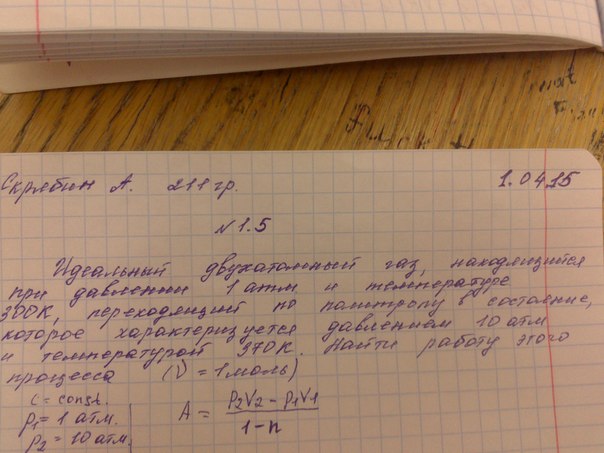 Скрябин А. 211 гр. 1.04.15
№1.5
Идеальный двухатомный газ, находящийся
при давлении 1 атм и температуре
300К, переходящий по политропу в состояние,
которое характеризуется давлением 10 атм
и температурой 370К. Найти работу этого
процесса (ν = 1 моль)
c = const.
p₁ = 1 атм.
p₂ = 10 атм.
A = (p₂V₂ - p₁V₁)/(1-n)